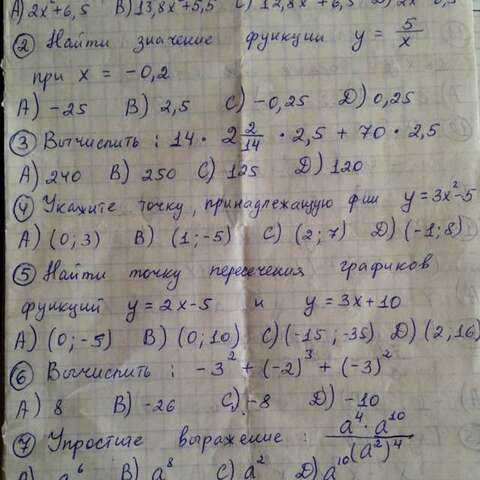 А) 2x²+6,5 В) 13,8x²+5,5 С) 12,8x²+6,5
② Найти значение функции y = 5/x
при x = -0,2
А) -25 В) 2,5 С) -0,25 D) 0,25
③ Вычислить: 14 · 2 2/14 · 2,5 + 70 · 2,5
А) 240 В) 250 С) 125 D) 120
④ Укажите точку, принадлежащую фии y = 3x²-5
А) (0; 3) В) (1; -5) С) (2; 7) D) (-1; 8)
⑤ Найти точку пересечения графиков
функций y = 2x-5 и y = 3x+10
А) (0; -5) В) (0; 10) С) (-15; -35) D) (2, 16)
⑥ Вычислить: -3² + (-2)³ + (-3)²
А) 8 В) -26 С) -8 D) -10
⑦ Упростите выражение: a⁴ · a¹⁰/(a²)⁴
А) a⁶ В) a⁸ С) a² D) a¹⁰